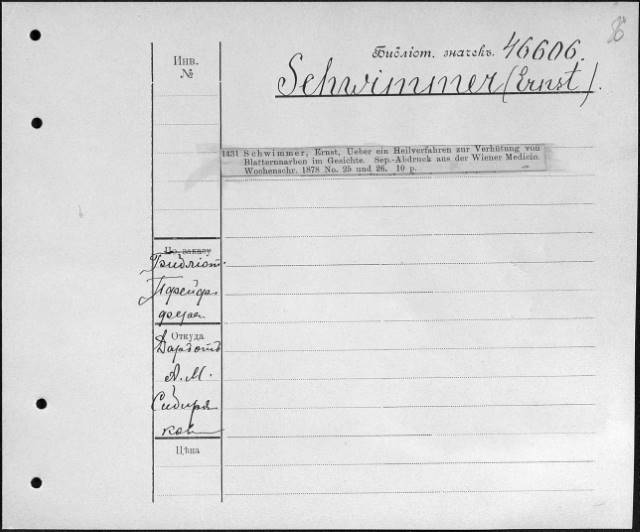 Библіот. значекъ. 46606.
Schwimmer (Ernst).
Инв.
№
1431 Schwimmer, Ernst, Ueber ein Heilverfahren zur Verhütung von
Blatternnarben im Gesichte. Sep.-Abdruck aus der Wiener Medicin.
Wochenschr. 1878 No. 25 und 26. 10 p.
По заказу
Библіот.
Пфейф
фера
Откуда
Даръ отъ
А. М.
Сибиря
кова
Цѣна